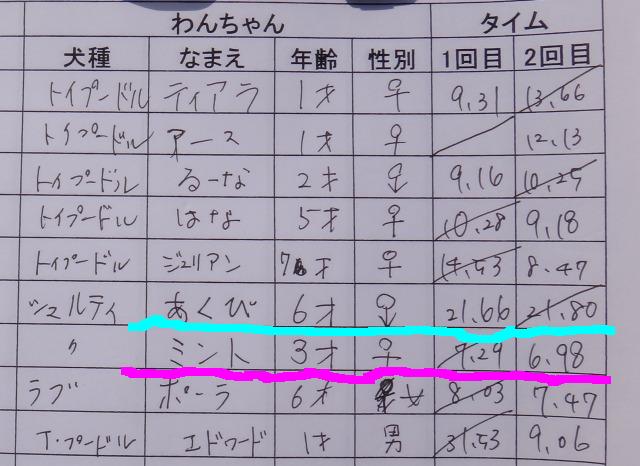 わんちゃん タイム
犬種 なまえ 年齢 性別 1回目 2回目
トイプードル ティアラ 1才 ♀ 9.31 13.66
トイプードル アース 1才 ♀ 12.13
トイプードル るーな 2才 ♀ 9.16 10.25
トイプードル はな 5才 ♀ 10.28 9.18
トイプードル ジュリアン 7才 ♀ 14.53 8.47
シェルティ あくび 6才 21.66 21.80
〃 ミント 3才 ♀ 7.29 6.98
ラブ ポーラ 6才 女 8.03 7.47
T・プードル エドワード 1才 男 31.53 9.06